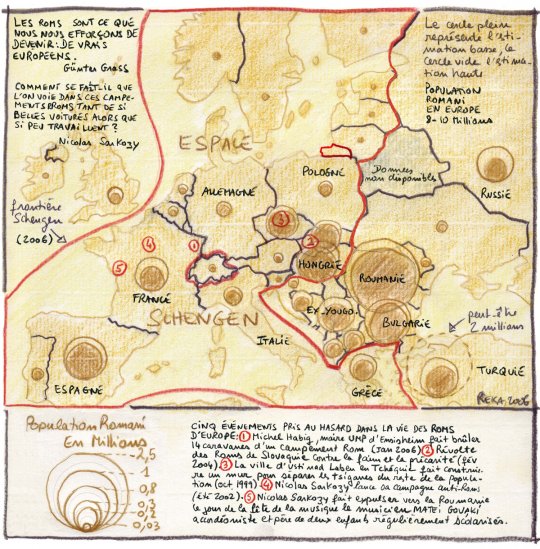 LES ROMS SONT CE QUE
NOUS NOUS EFFORÇONS DE
DEVENIR : DE VRAIS
EUROPÉENS.
Günter Grass
COMMENT SE FAIT-IL QUE
L'ON VOIE DANS CES CAMPE-
MENTS ROMS TANT DE SI
BELLES VOITURES ALORS QUE
SI PEU TRAVAILLENT ?
Nicolas Sarkozy
Le cercle plein
représente l'esti-
mation basse, le
cercle vide l'estima-
tion haute
POPULATION
ROMANI
EN EUROPE
8-10 Millions
frontière
Schengen
(2006)
ESPACE
SCHENGEN
ALLEMAGNE
POLOGNE
Données
non disponibles
RUSSIE
3
2
1
4
5
HONGRIE
ROUMANIE
FRANCE
EX-YOUGO.
BULGARIE
ITALIE
peut-être
2 millions
ESPAGNE
GRÈCE
TURQUIE
REKA-2006
Population Romani
En Millions
2,5
1
0,8
0,3
0,2
0,03
CINQ ÉVÉNEMENTS PRIS AU HASARD DANS LA VIE DES ROMS
D'EUROPE: 1 Michel Habig, maire UMP d'Ensisheim fait brûler
14 caravanes d'un campement Rom (Jan 2006) 2 Révolte
des Roms de Slovaquie contre la faim et la précarité (fév
2004). 3 La ville d'Usti nad Labem en Tchéquie fait construi-
re un mur pour séparer les tsiganes du reste de la popula-
tion (oct 1999). 4 Nicolas Sarkozy lance sa campagne anti-Roms
(été 2002). 5 Nicolas Sarkozy fait expulser vers la Roumanie
le jour de la fête de la musique le musicien MATEI GOUAKI
accordéoniste et père de deux enfants régulièrement scolarisés.